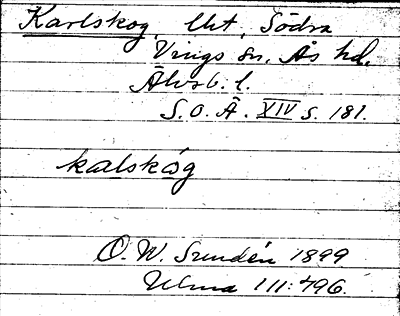 Karlskog, Uht, Södra
Vings sn, Ås hd,
Älvsb. l.
S.O.Ä. XIV s. 181.
kalskóg
O. W. Sundén 1899
Ulma 111:496.